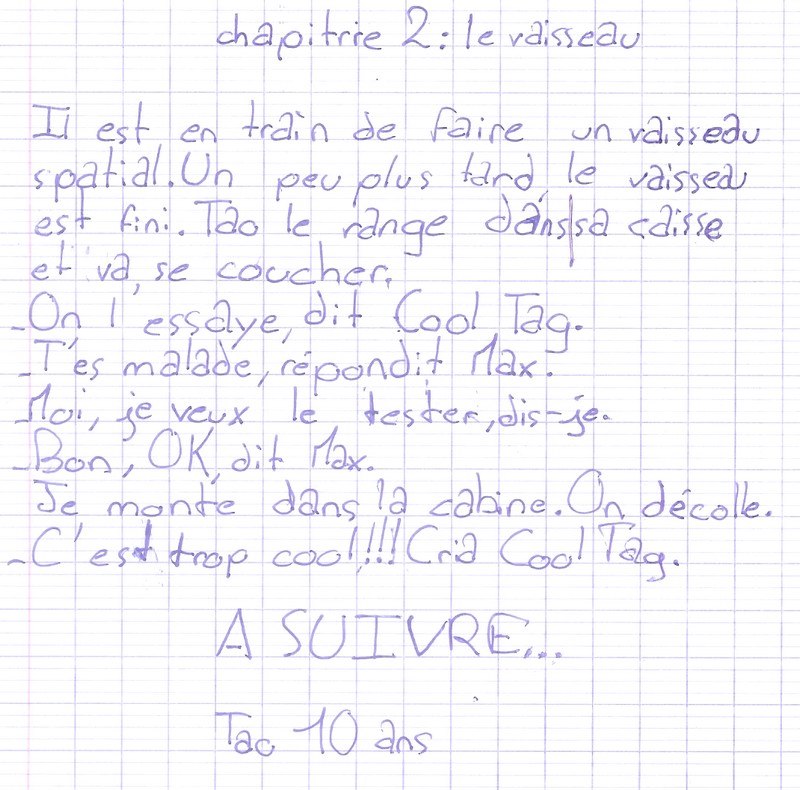 chapitrie 2: le vaisseau
Il est en train de faire un vaisseau
spatial. Un peu plus tard, le vaisseau
est fini. Tao le range dans sa caisse
et va, se coucher.
-On l'essaye, dit Cool Tag.
-T'es malade, répondit Max.
-Moi, je veux le tester, dis-je.
-Bon, OK, dit Max.
Je monte dans la cabine. On décolle.
-C'est trop cool!!!! Cria Cool Tag.
A SUIVRE...
Tao 10 ans